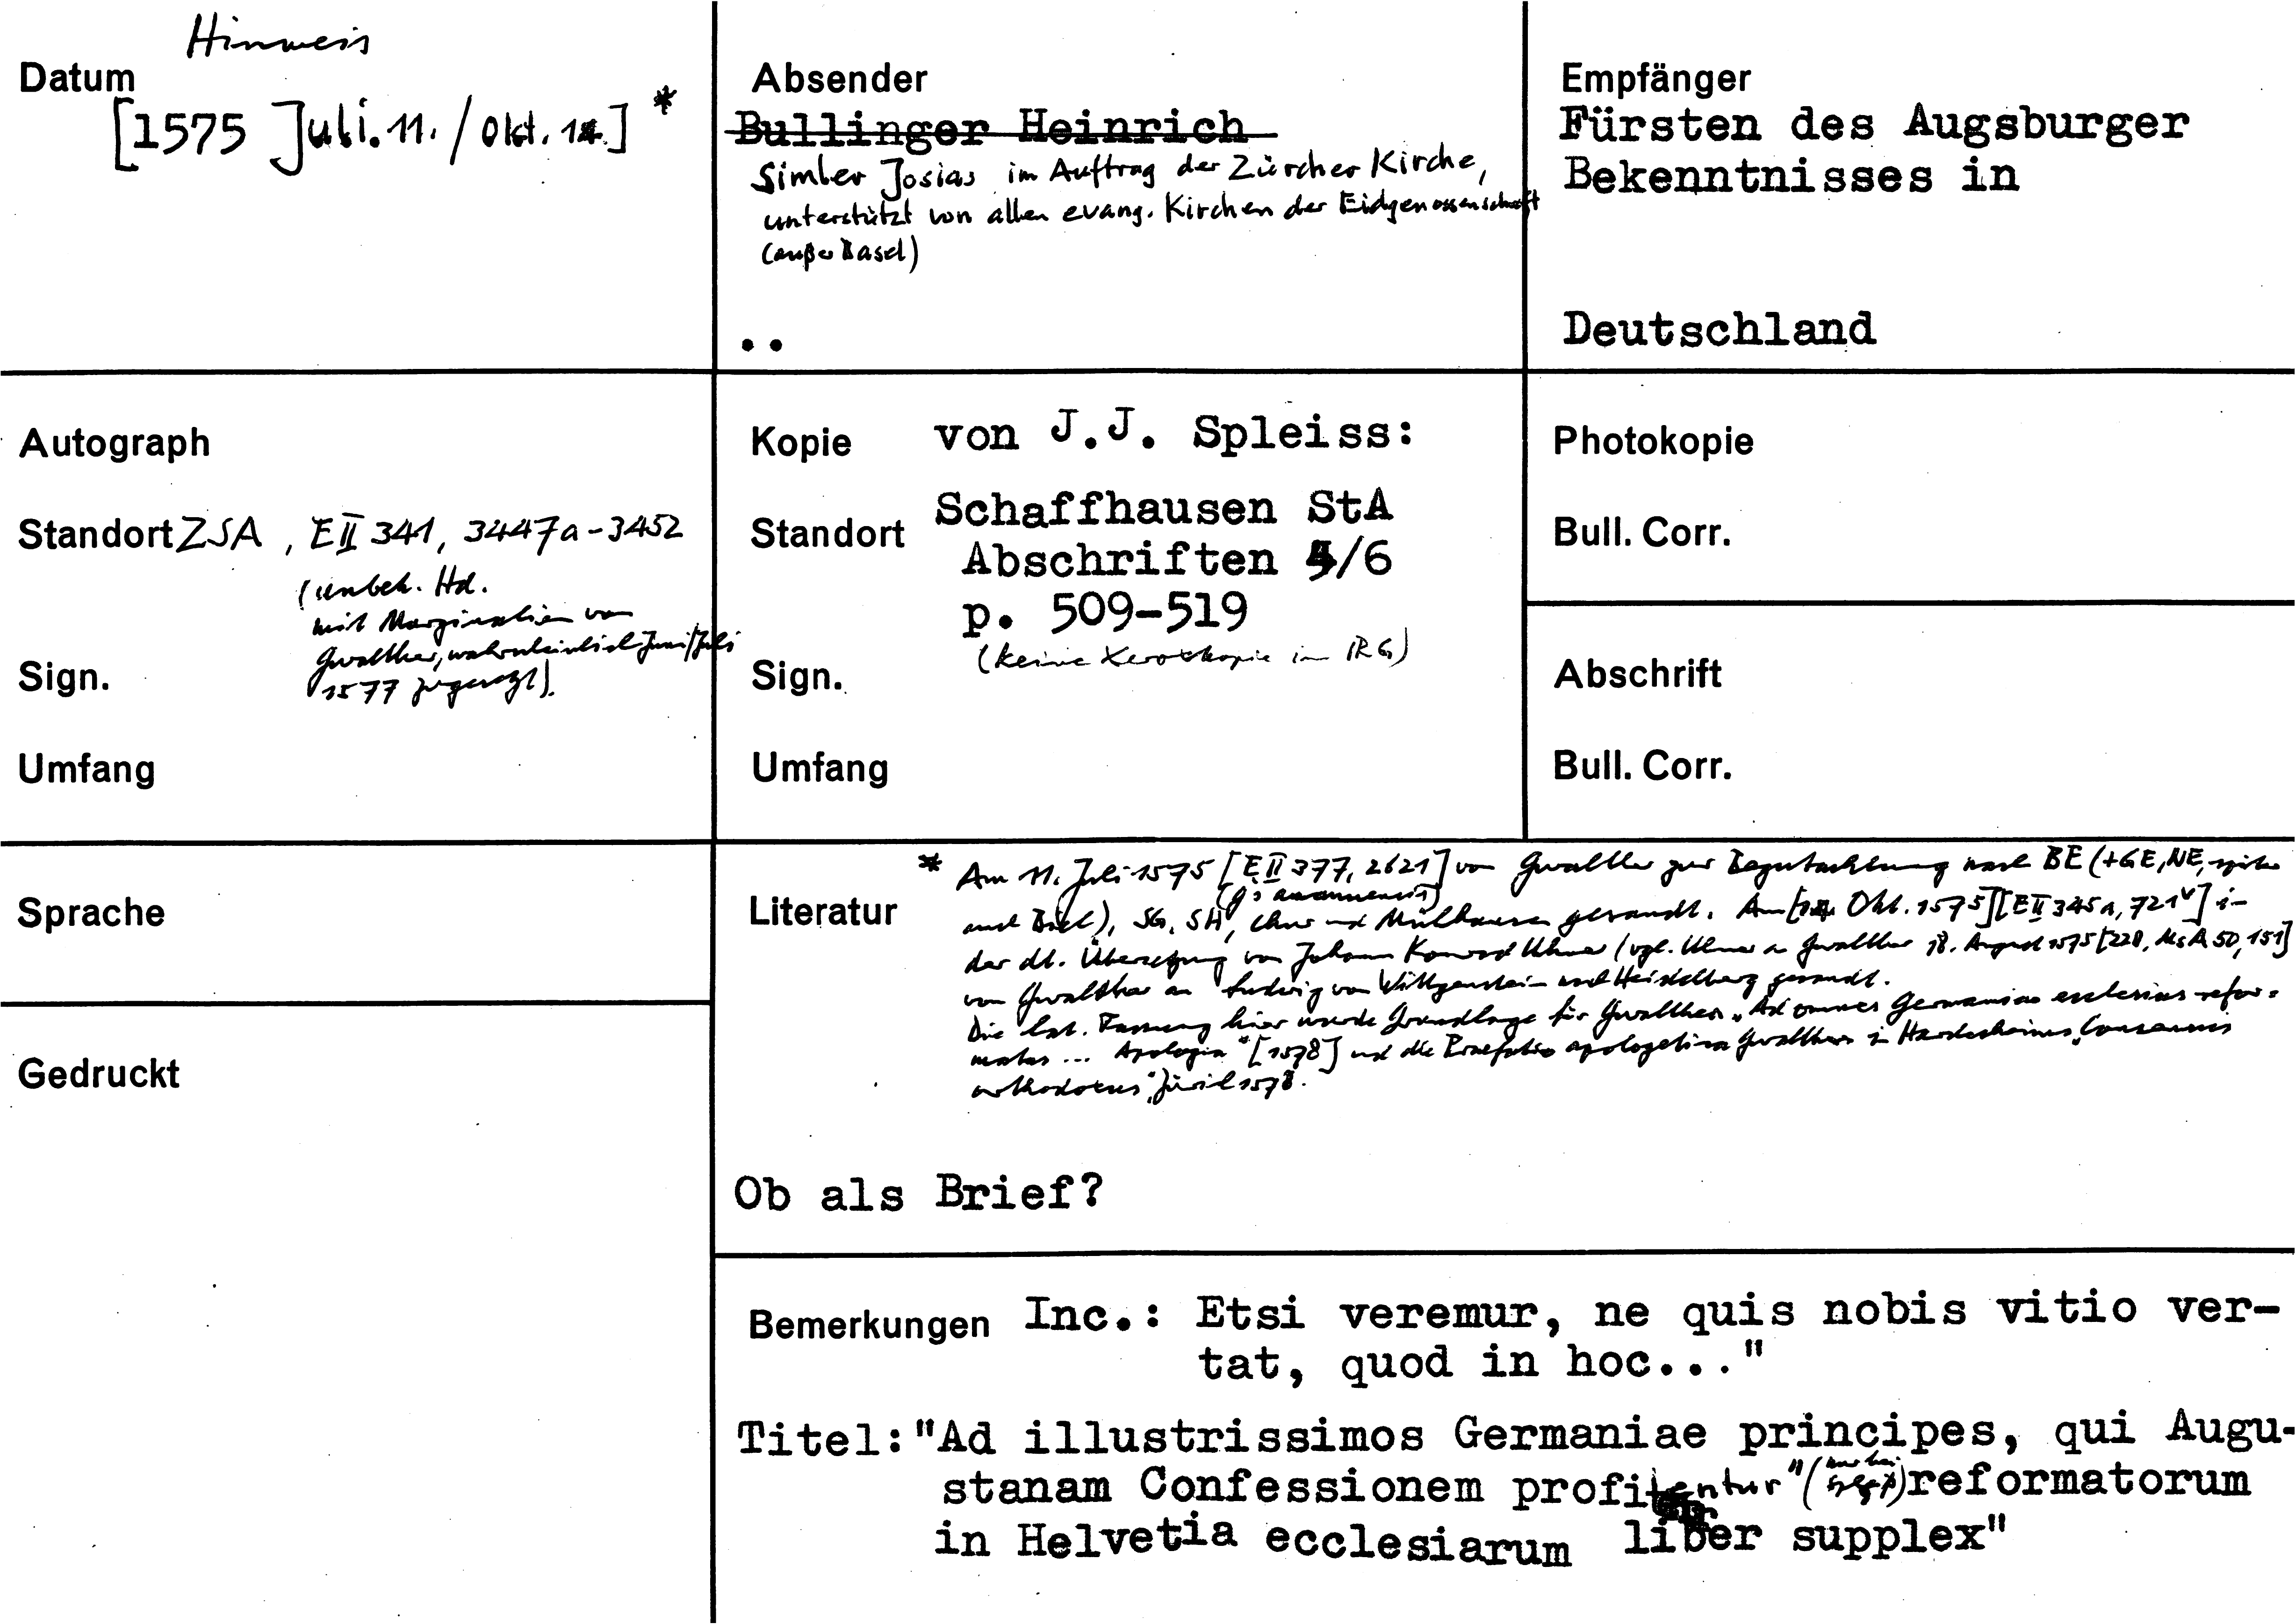 Hinweis
Datum
[1575 Juli. 11. / Okt. 14.] *
Absender
Bullinger Heinrich
Simler Josias im Auftrag der Zürcher Kirche,
unterstützt von allen evang. Kirchen der Eidgenossenschaft
(außer Basel)
..
Empfänger
Fürsten des Augsburger
Bekenntnisses in
Deutschland
Autograph
Standort ZSA, E II 341, 3447a-3452
(unbek. Hd.
mit Marginalien von
Gwalther, wahrscheinlich Juni/Juli
1577 zugesetzt).
Sign.
Umfang
Kopie von J.J. Spleiss:
Standort Schaffhausen StA
Abschriften 5/6
p. 509-519
(keine Xerokopie im IRG)
Sign.
Umfang
Photokopie
Bull. Corr.
Abschrift
Bull. Corr.
Sprache
Gedruckt
Literatur
* Am 11. Juli 1575 [E II 377, 2621] von Gwalther zur Begutachtung nach BE (+GE, NE, später
auch Biel), SG, SH, Chur und Mülhausen gesandt. Am [14. Okt. 1575] [E II 345a, 721v] in
der dt. Übersetzung von Johann Konrad Ulmer (vgl. Ulmer an Gwalther 18. August 1575 [ZZB, Ms A 50, 151]
von Gwalther an Ludwig von Wittgenstein nach Heidelberg gesandt.
Die lat. Fassung hier wurde Grundlage für Gwalthers „Ad omnes Germaniae ecclesias refor=
matas ... Apologia" [1578] und die Praefatio apologetica Gwalthers in Hardesheims „Consensus
orthodoxus", Zürich 1578.
Ob als Brief?
Bemerkungen Inc.: Etsi veremur, ne quis nobis vitio ver-
tat, quod in hoc..."
Titel: "Ad illustrissimos Germaniae principes, qui Augu-
stanam Confessionem profitentur" ( ) reformatorum
in Helvetia ecclesiarum liber supplex"